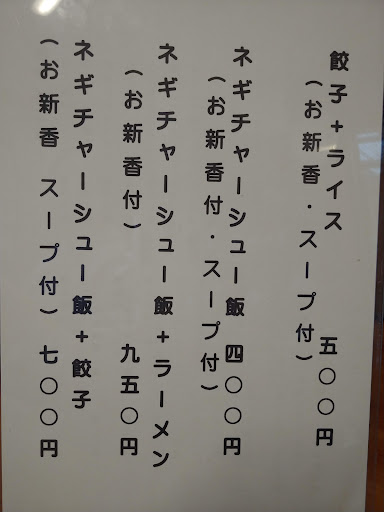 餃子+ライス
(お新香・スープ付) 五〇〇円
ネギチャーシュー飯 四〇〇円
(お新香付・スープ付)
ネギチャーシュー飯+ラーメン
(お新香付) 九五〇円
ネギチャーシュー飯+餃子
(お新香 スープ付) 七〇〇円